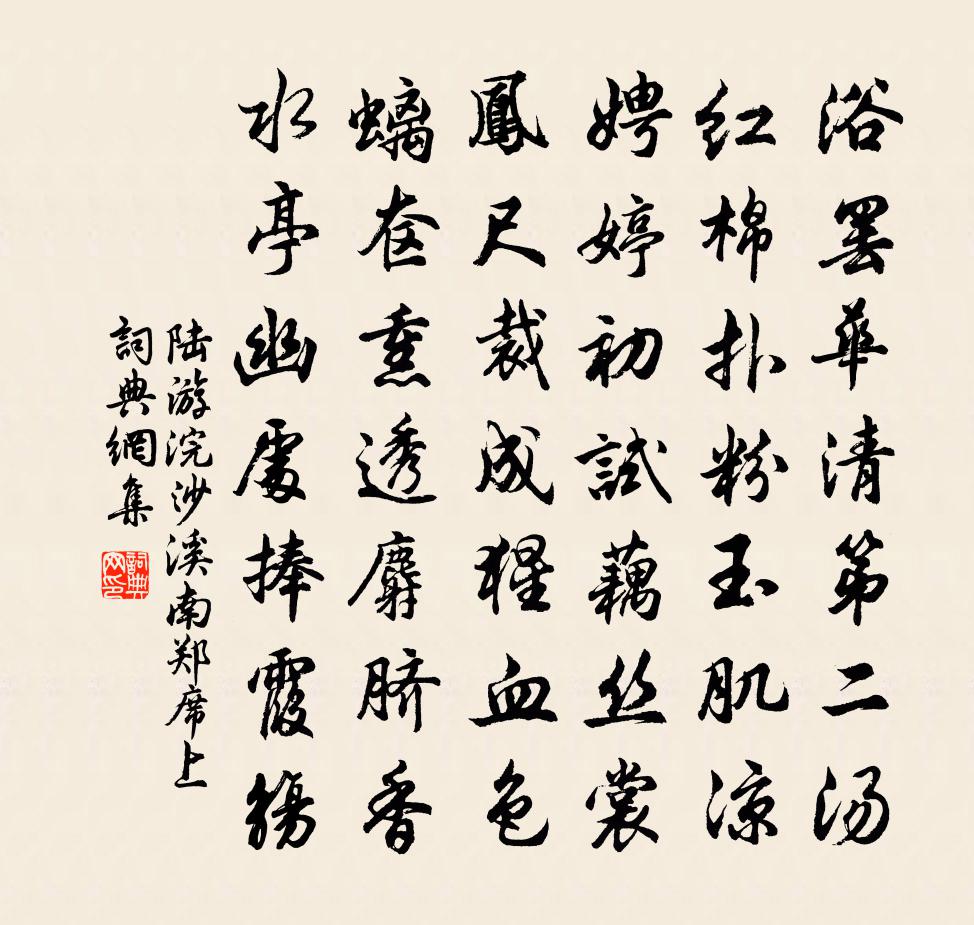 浴罷華清第二汤
红棉扑粉玉肌涼
娉婷初試藕丝裳
鳳尺裁成猩血色
螭奁熏透麝脐香
水亭幽處捧霞觴
陆游浣沙溪南郑席上
詞典網集
詞典网印